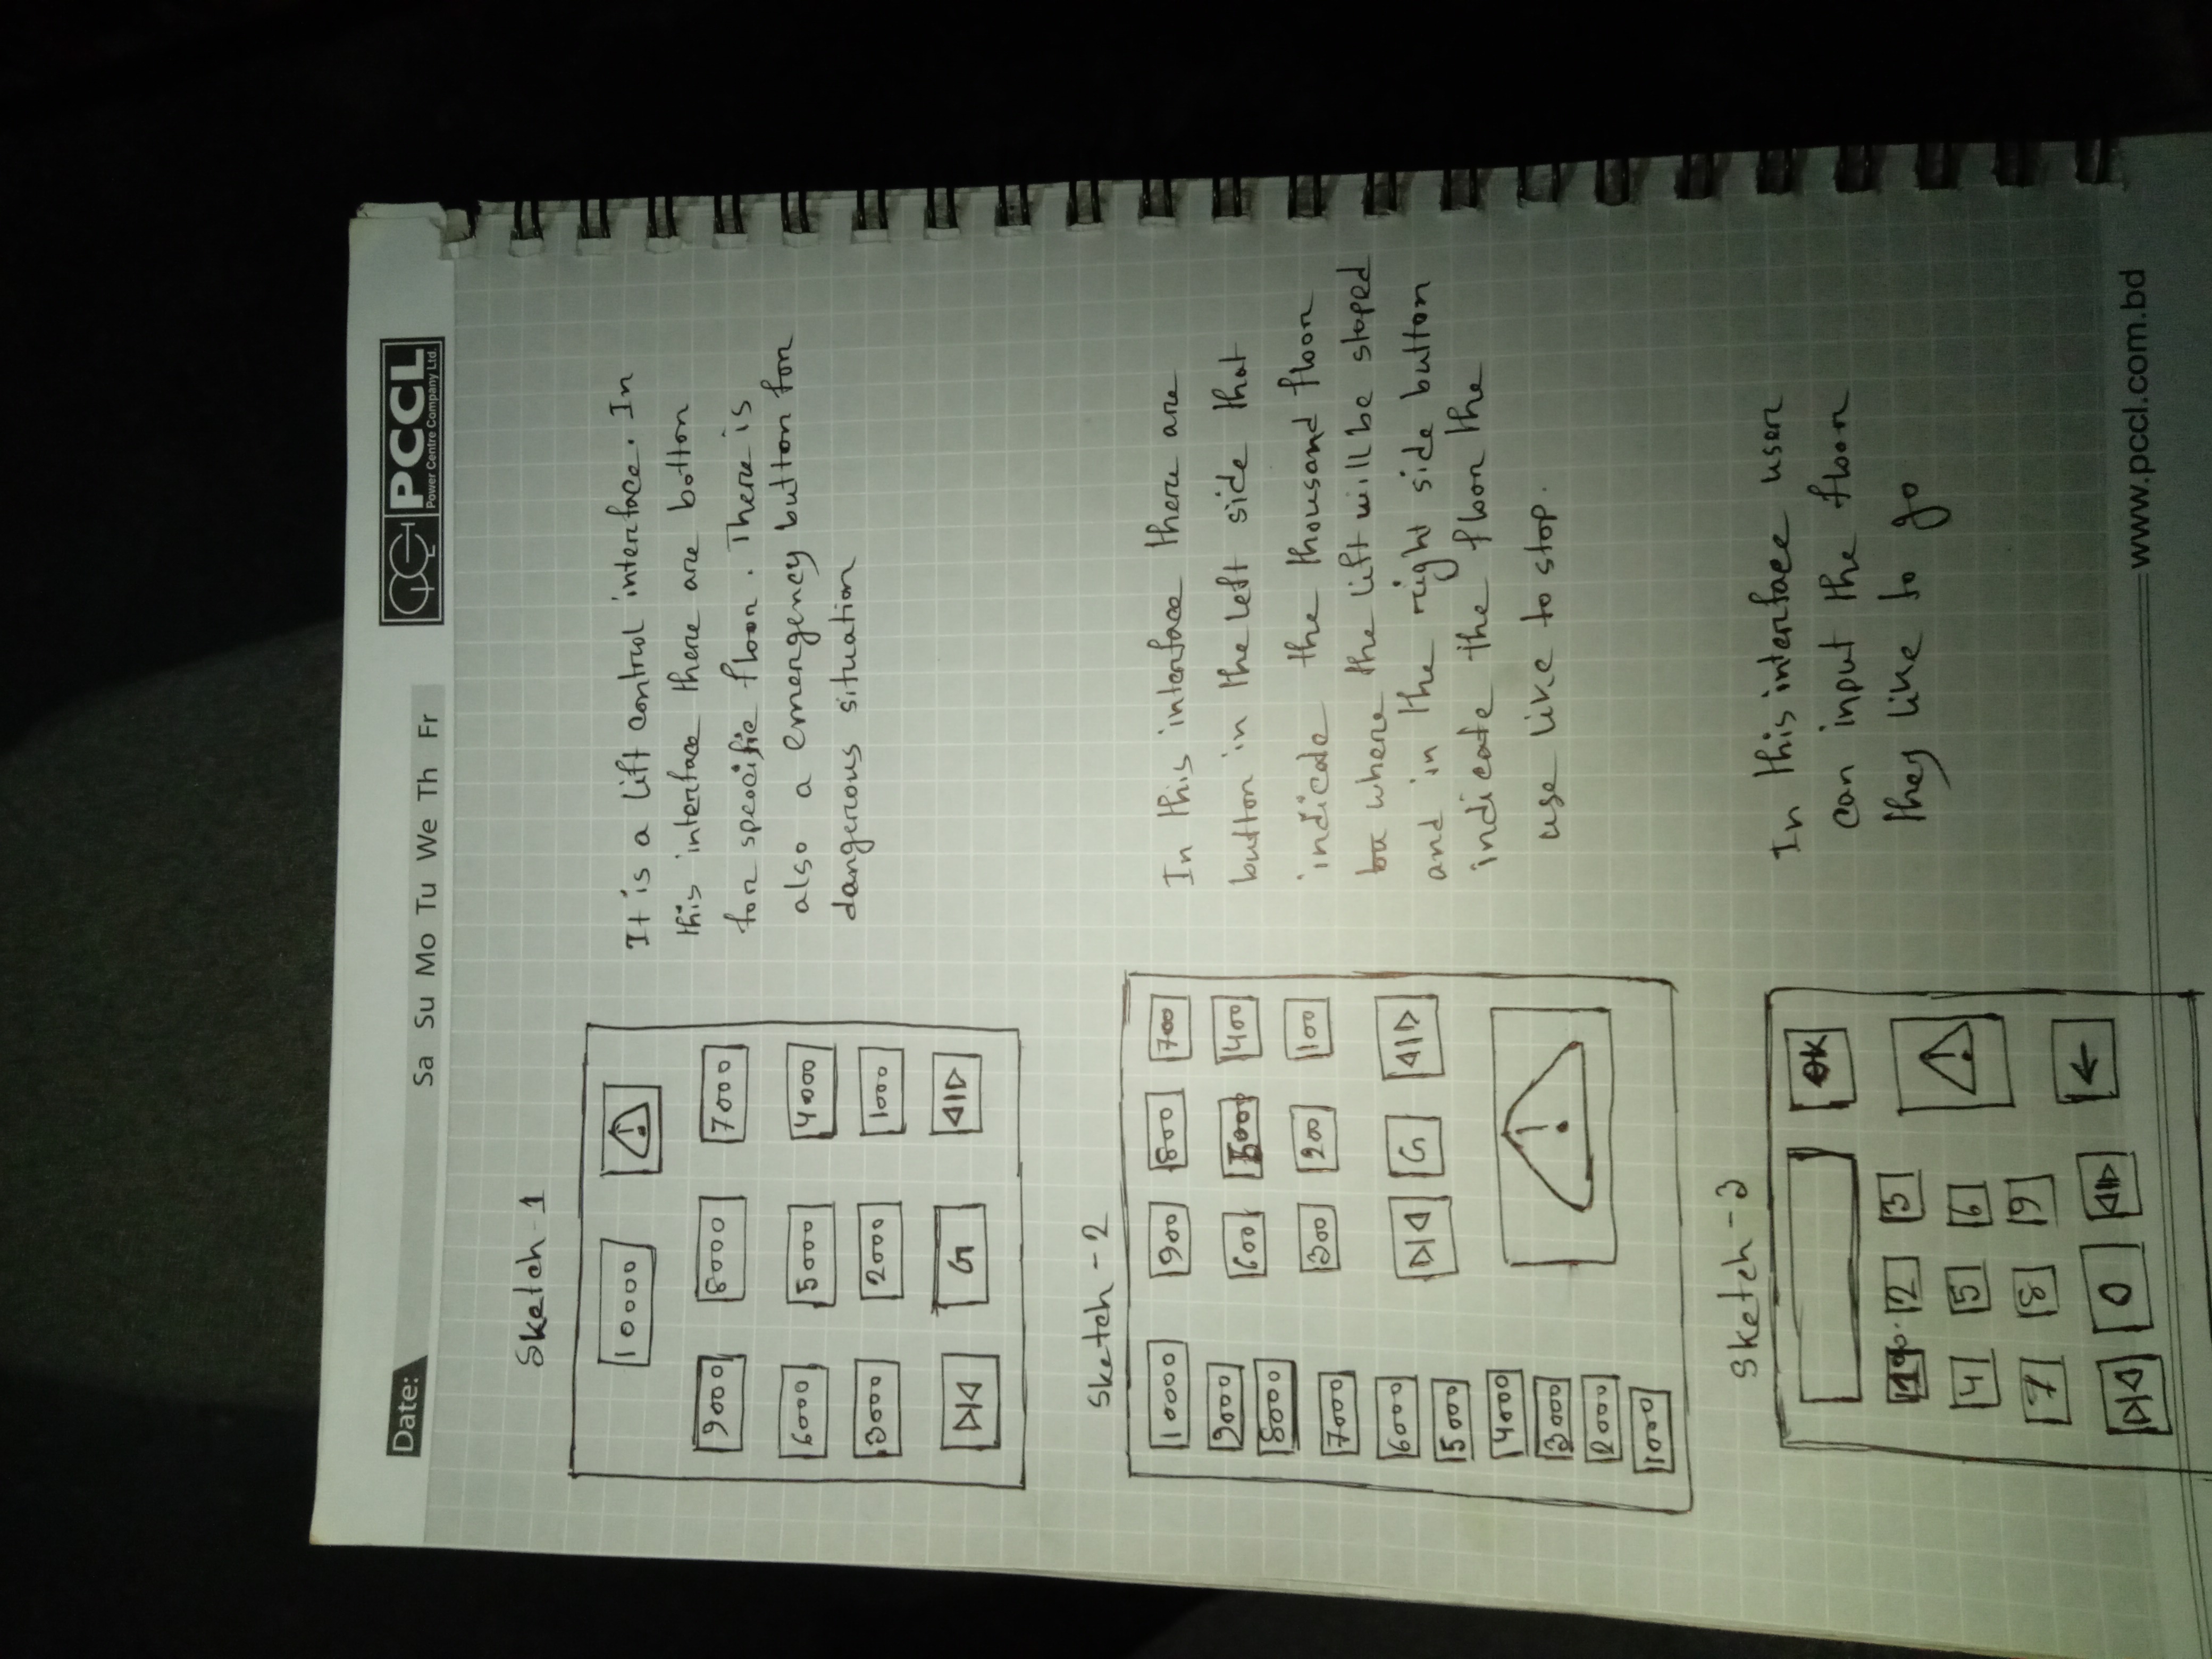 Date:
Sa Su Mo Tu We Th Fr
PCCL
Power Centre Company Ltd.
Sketch-1
10000 !
9000 8000 7000
6000 5000 4000
3000 2000 1000
G
It is a lift control interface. In
this interface there are botton
for speocific floor. There is
also a emergency button for
dangerous situation
Sketch-2
10000 900 800 700
9000
600 400
8000
300 200 100
7000
6000
G
5000
4000
!
3000
2000
1000
In this interface there are
button in the left side that
indicate the thousand floor
where the lift will be stoped
and in the right side button
indicate the floor the
use like to stop.
Sketch-3
OK
2 3
4 5 6
!
7 8 9
0
←
In this interface user
can input the floor
they like to go
www.pccl.com.bd